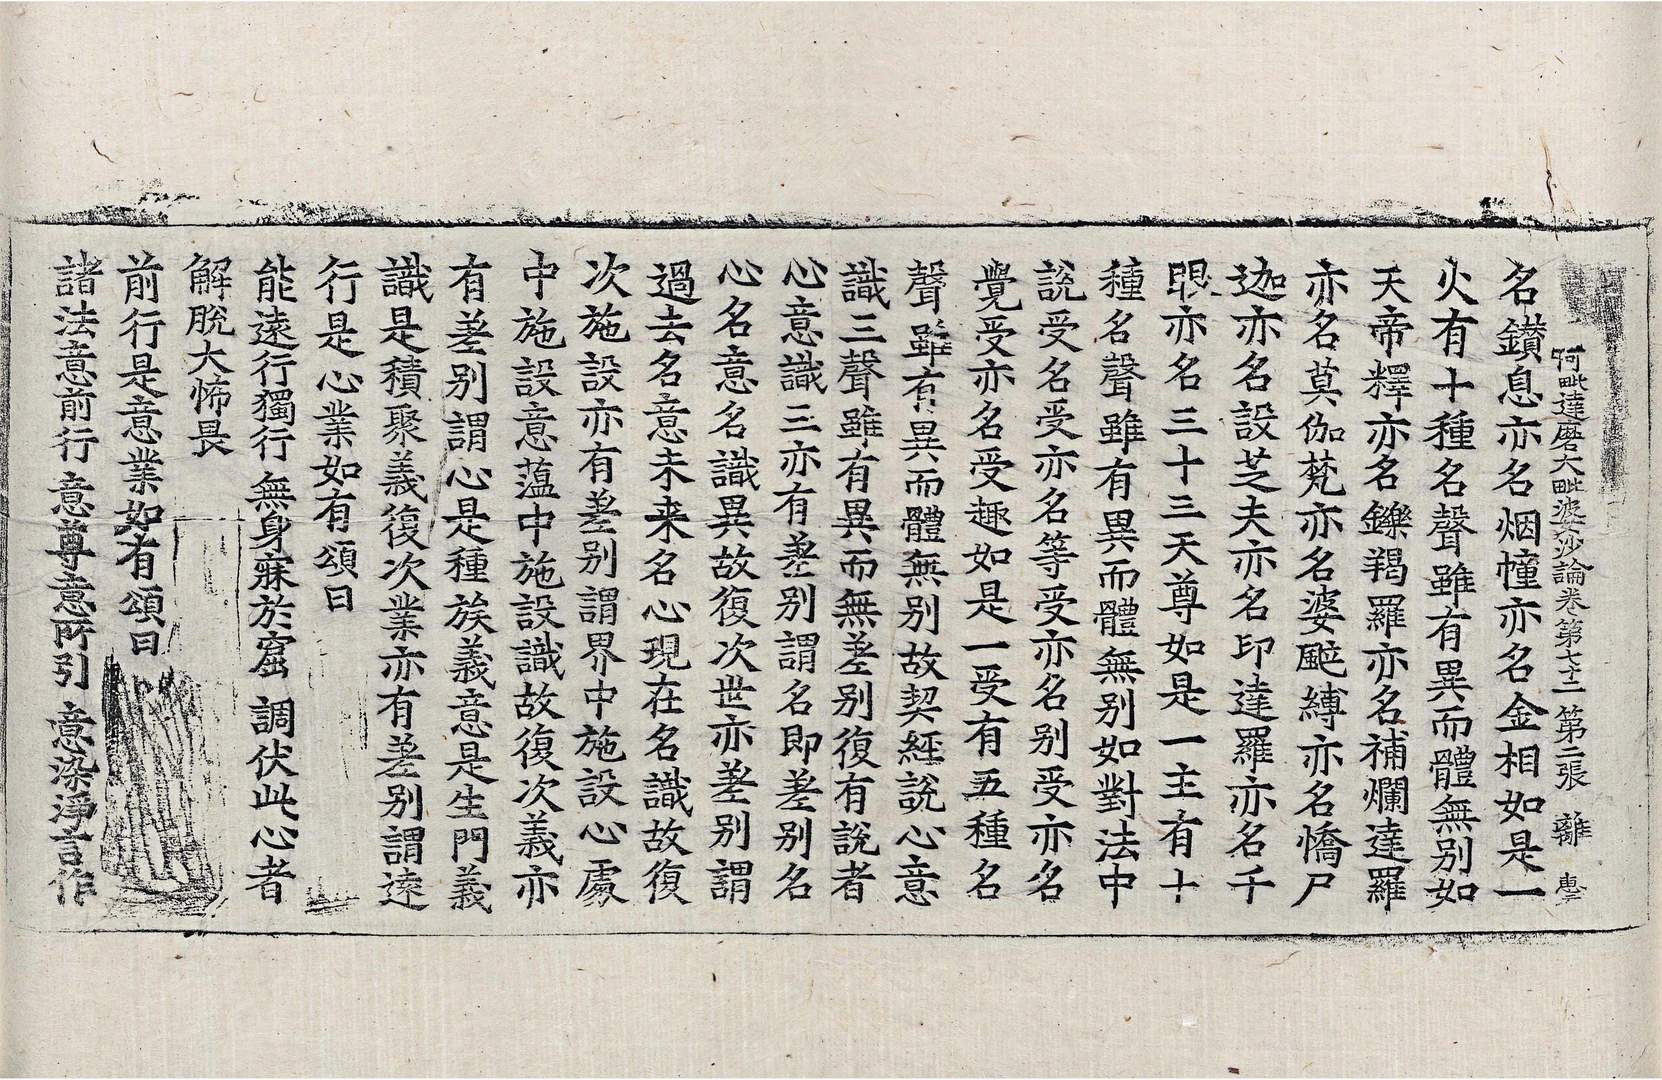 阿毗達磨大毗婆沙論卷第七十二 第二張 離 惠
名鑚息亦名烟幢亦名金相如是一
火有十種名聲雖有異而體無別如
天帝釋亦名鑠羯羅亦名補爛達羅
亦名莫伽梵亦名婆颰縛亦名憍尸
迦亦名設芝夫亦名印達羅亦名千
眼亦名三十三天尊如是一主有十
種名聲雖有異而體無別如對法中
說受名受亦名等受亦名別受亦名
覺受亦名受趣如是一受有五種名
聲雖有異而體無別故契経說心意
識三聲雖有異而無差別復有說者
心意識三亦有差別謂名即差別名
心名意名識異故復次世亦差別謂
過去名意未来名心現在名識故復
次施設亦有差別謂界中施設心處
中施設意蕰中施設識故復次義亦
有差別謂心是種族義意是生門義
識是積聚義復次業亦有差別謂遠
行是心業如有頌曰
能遠行獨行 無身寐於窟 調伏此心者
解脫大怖畏
前行是意業如有頌曰
諸法意前行 意尊意所引 意染淨言作